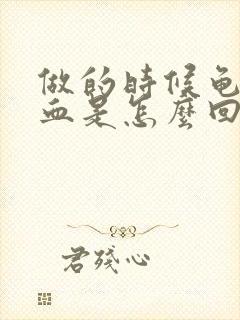 做的時候龟
血是怎麼回
君殘心